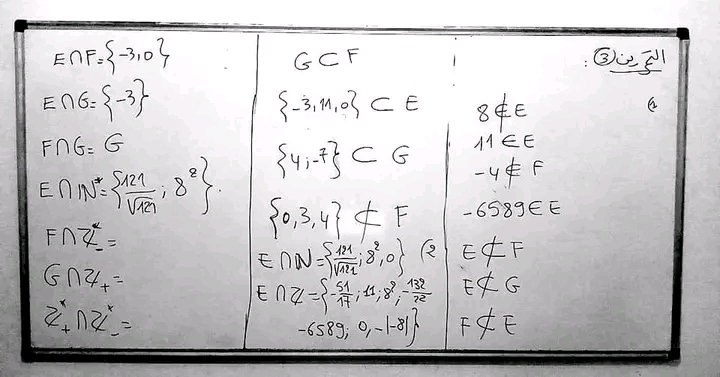 التمرين ③ :
1)
8 ∉ E
11 ∈ E
-4 ∉ F
-6589 ∈ E
E ⊄ F
E ⊄ G
F ⊄ E
G ⊂ F
{-3,11,0} ⊂ E
{4;-7} ⊂ G
{0,3,4} ⊄ F
2) E∩ℕ={121/√121;8²,0}
E∩ℤ={-51/17;11;8²;-132/22
-6589; 0,-|-8|}
E∩F={-3,0}
E∩G={-3}
F∩G= G
E∩ℕ*={121/√121;8²}.
F∩ℤ*₋=
G∩ℤ₊=
ℤ*₊∩ℤ*₋=